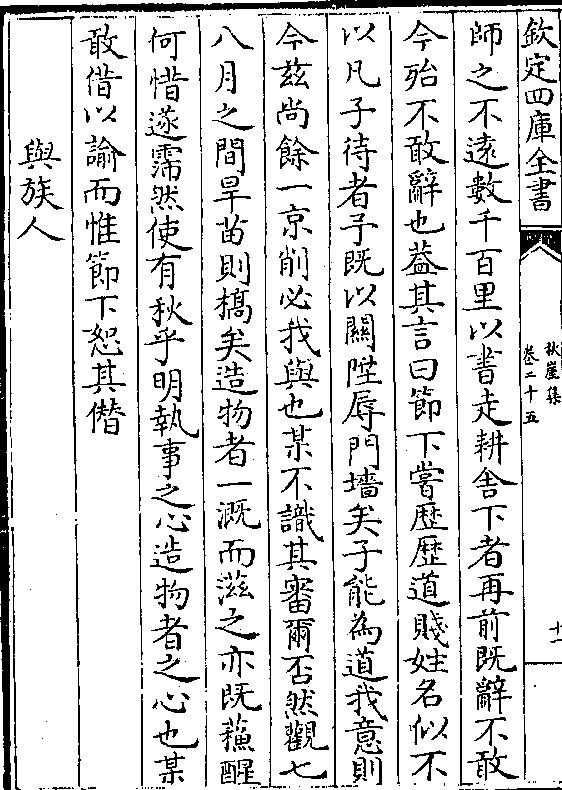 欽定四庫全書
秋崖集
卷二十五
十一
師之不遠數千百里以書走耕舍下者再前既辭不敢
今殆不敢辭也葢其言曰節下嘗歴歴道賤姓名似不
以凡子待者子既以闗陞辱門墻矣子能為道我意則
今兹尚餘一京削必我與也某不識其審爾否然觀七
八月之間旱苗則槁矣造物者一溉而滋之亦既蘓醒
何惜遂霈然使有秋乎明執事之心造物者之心也某
敢借以諭而惟節下恕其僭
與族人